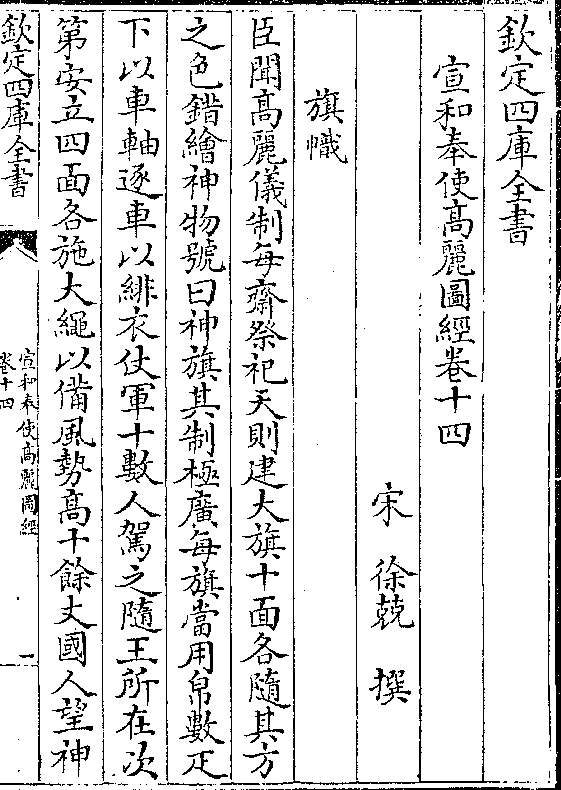 欽定四庫全書
宣和奉使髙麗圖經卷十四
宋 徐兢 撰
旗幟
臣聞髙麗儀制每齋祭祀天則建大旗十面各隨其方
之色錯繪神物號曰神旗其制極廣每旗當用帛數疋
下以車軸逐車以緋衣仗軍十數人駕之隨王所在次
第安立四面各施大繩以備風勢髙十餘丈國人望神
欽定四庫全書
宣和奉使髙麗圖經
卷十四
一